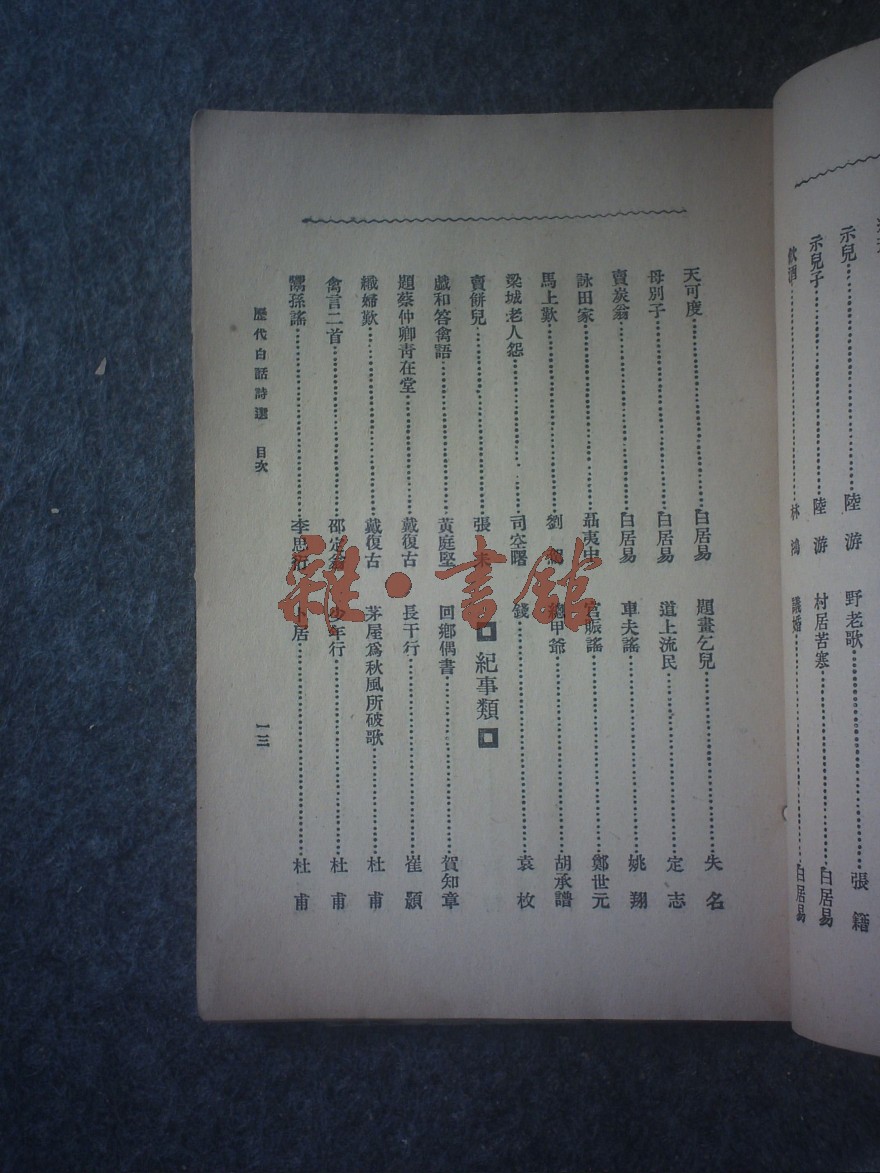 示兒……陸游
野老歌……張籍
示兒子……陸游
村居苦寒……白居易
林鴻
議婚……白居易
天可度……白居易
母別子……白居易
賣炭翁……白居易
詠田家……聶夷中
馬上歎……劉
梁城老人怨……司空曙
賣餅兒……張耒
戲和答禽語……黃庭堅
題蔡仲卿靑在堂……戴復古
織婦歎……戴復古
禽言二首……邵定翁
鬻孫謠……李思衍
題畫乞兒……失名
道上流民……定志
車夫謠……姚翔
官賑謠……鄭世元
總甲爺……胡承譜
錢……袁枚
紀事類
回鄉偶書……賀知章
長干行……崔顥
茅屋爲秋風所破歌……杜甫
少年行……杜甫
卜居……杜甫
歷代白話詩選 目次
一三
雜·書館